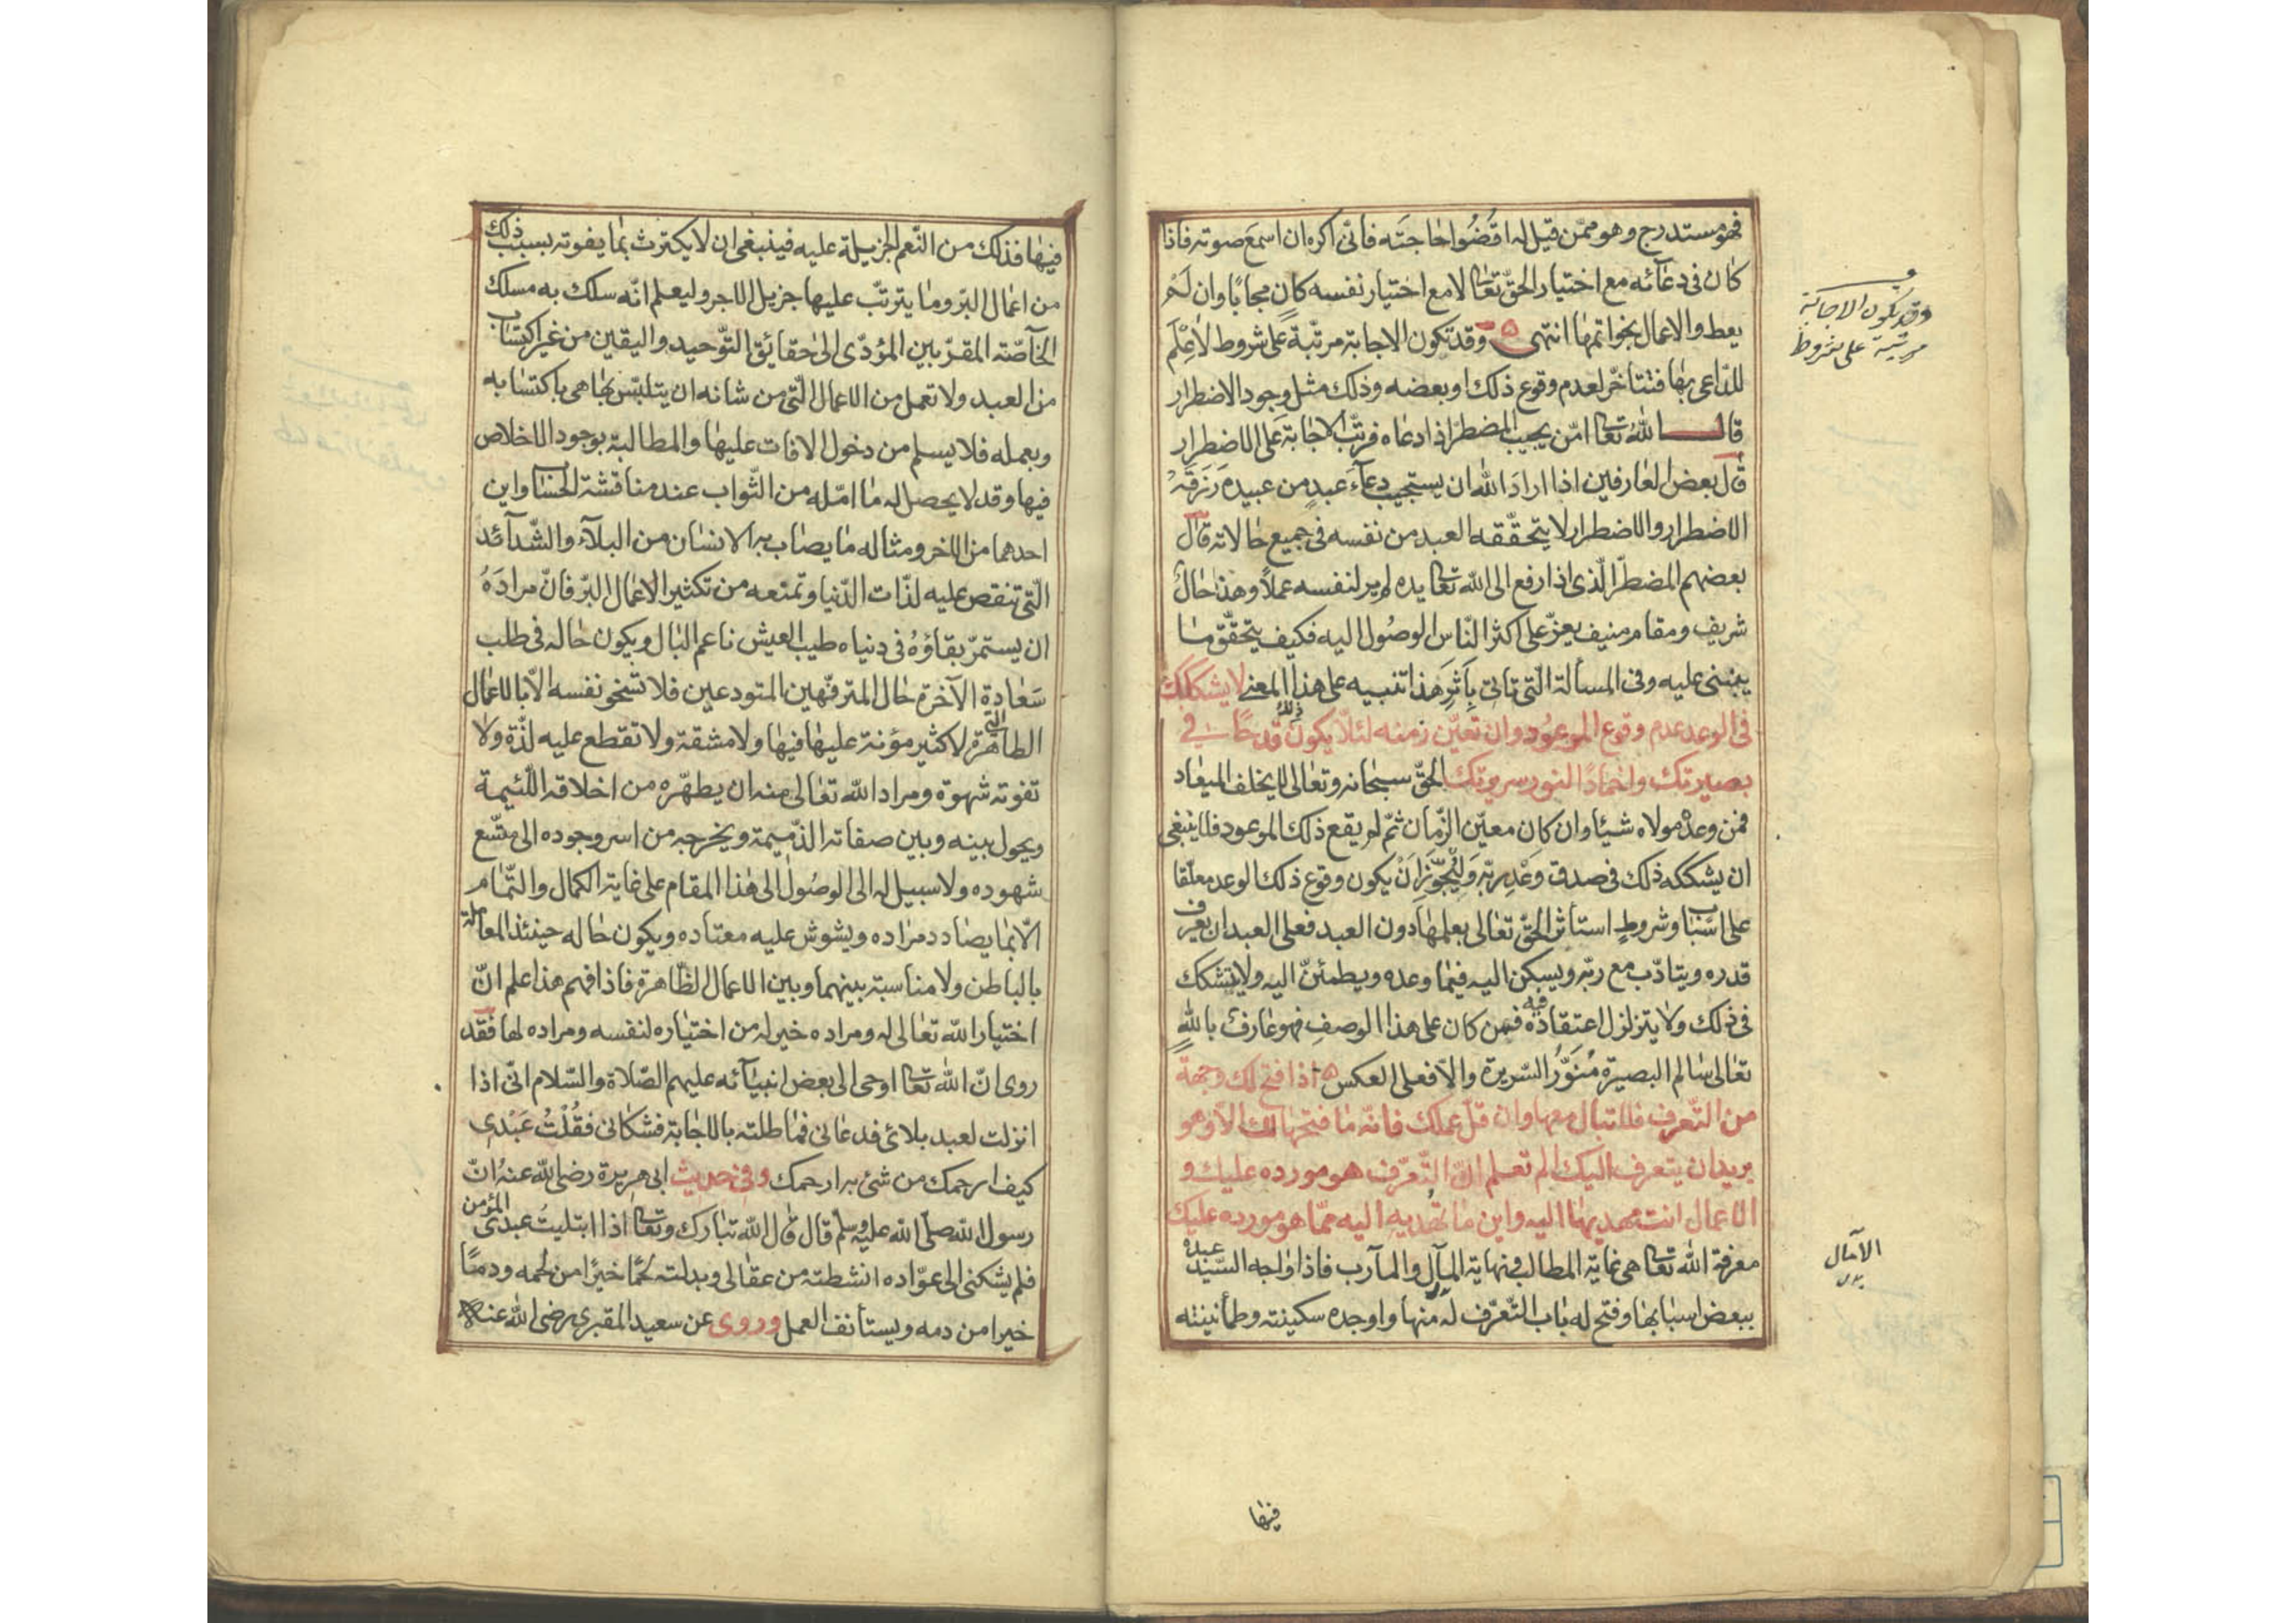 فهو مستدرج وهو ممّن قيل له اقضُوا حاجته فانّى اكره ان اسمع صوته فاذا
كان فى دعآئه مع اختيار الحقّ تعالى لا مع اختيار نفسه كان مجابًا وان لم
يعط والاعمال بخواتمها انتهى وقد تكون الاجابة مرتّبة على شروط لا علم
للدّاعى بها فتتأخّر لعدم وقوع ذلك او بعضه وذلك مثل وجود الاضطرار
قال الله تعالى امّن يجيب المضطرّ اذا دعاه فرتّب الاجابة على الاضطرار
قال بعض العارفين اذا اراد الله ان يستجيب دعآء عبد من عبيده رزقه
الاضطرار والاضطرار لا يتحقّقه العبد من نفسه فى جميع حالاته قال
بعضهم المضطرّ الّذى اذا رفع الى الله تعالى يده لم ير لنفسه عملاً وهذا حالٌ
شريف ومقام منيف يعزّ على اكثر النّاس الوصول اليه فكيف يتحقّق ما
ينبنى عليه وفى المسألة الّتى تاتى بأثر هذا تنبيه على هذا المعنى لا يشككك
فى الوعد عدم وقوع الموعود وان تعيّن زمنه لئلّا يكون ذلك قدحًا فى
بصيرتك واخمادًا لنور سريرتك الحقّ سبحانه وتعالى لا يخلف الميعاد
فمن وعده مولاه شيئا وان كان معيّن الزّمان ثمّ لم يقع ذلك الموعود فلا ينبغى
ان يشككه ذلك فى صدق وعد ربّه وليجوّز ان يكون وقوع ذلك الوعد معلّقا
على اسباب وشروط استأثر الحقّ تعالى بعلمها دون العبد فعلى العبد ان يعرف
قدره ويتادّب مع ربّه ويسكن اليه فيما وعده ويطمئنّ اليه ولا يتشكك
فى ذلك ولا يتزلزل اعتقاده فيه فمن كان على هذا الوصف فهو عارف بالله
تعالى سالم البصيرة منوّر السّريرة والّا فعلى العكس اذا فتح لك وجهة
من التّعرف فلا تبال معها وان قلّ عملك فانّه ما فتحها لك الّا وهو
يريد ان يتعرف اليك الم تعلم انّ التّعرّف هو مورده عليك و
الاعمال انت مهديها اليه واين ما تهديه اليه ممّا هو مورده عليك
معرفة الله تعالى هى غاية المطالب ونهاية المآل والمآرب فاذا واجه السّيّد عبده
ببعض اسبابها وفتح له باب التّعرّف له منها واوجده سكينته وطمأنينته
وقد يكون الاجابة
مرتبة على شروط
الآمال
فيها
فيها فذلك من النّعم الجزيلة عليه فينبغى ان لا يكترث بما يفوته بسبب ذلك
من اعمال البرّ وما يترتّب عليها جزيل الاجر وليعلم انّه سلك به مسلك
الخآصّة المقرّبين المؤدّى الى حقائق التّوحيد واليقين من غير اكتساب
من العبد ولا تعمل من الاعمال الّتى من شانه ان يتلبّس بها هى باكتسابه
وبعمله فلا يسلم من دخول الافات عليها والمطالبة بوجود الاخلاص
فيها وقد لا يحصل له ما امّله من الثّواب عند مناقشة الحساب واين
احدهما من الاخر ومثاله ما يصاب به الانسان من البلآء والشّدآئد
الّتى تنقص عليه لذّات الدّنيا وتمنعه من تكثير الاعمال البرّ فانّ مراده
ان يستمرّ بقاؤه فى دنياه طيب العيش ناعم البال ويكون حاله فى طلب
سعادة الآخرة حال المترفّهين المتودعين فلا تسخو نفسه الّا بالاعمال
الظاهرة الّتى لا كثير مؤنة عليها فيها ولا مشقة ولا تقطع عليه لذّة ولا
تفوته شهوة ومراد الله تعالى منه ان يطهّره من اخلاقه اللّئيمة
ويحول بينه وبين صفاته الذّميمة ويخرجه من اسر وجوده الى متّسع
شهوده ولا سبيل له الى الوصول الى هذا المقام على غاية الكمال والتّمام
الّا بما يضادد مراده ويشوش عليه معتاده ويكون حاله حينئذ المعاملة
بالباطن ولا مناسبة بينهما وبين الاعمال الظّاهرة فاذا فهم هذا علم انّ
اختيار الله تعالى له ومراده خير له من اختياره لنفسه ومراده لها فقد
روى انّ الله تعالى اوحى الى بعض انبيآئه عليهم الصّلاة والسّلام انّى اذا
انزلت لعبد بلائى فدعانى فماطلته بالاجابة فشكانى فقلت عبدى
كيف ارحمك من شئ به ارحمك وفى حديث ابى هريرة رضى الله عنه انّ
رسول الله صلّى الله عليه وسلّم قال قال الله تبارك وتعالى اذا ابتليت عبدى المؤمن
فلم يشكنى الى عوّاده انشطته من عقالى وبدلته لحمًا خيرًا من لحمه ودمًا
خيرا من دمه ويستأنف العمل وروى عن سعيد المقبرى رضى الله عنه